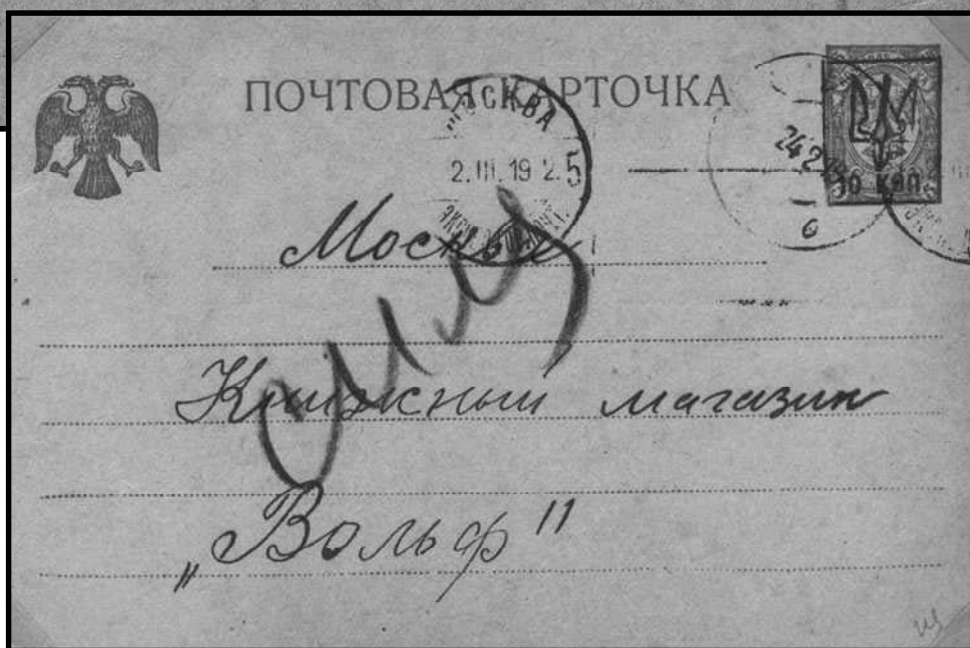 ПОЧТОВАЯ КАРТОЧКА
МОСКВА
2.III.19 2.5
24 2
10 КОП.
Москва
Книжный магазин
„Вольф"